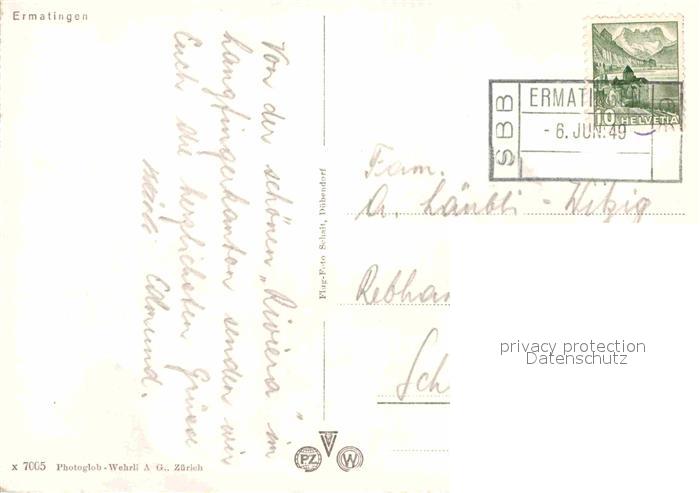 Ermatingen
Von der schönen „Riviera“ im
Langfingerkanton senden wir
Euch die herzlichsten Grüsse
Edmund.
Flug-Foto Schait, Dübendorf
SBB
ERMATING
- 6. JUN. 49
10 HELVETIA
Fam.
A. Läubli - Hitzig
Rebha
Sch
privacy protection
Datenschutz
PZ
W
x 7005 Photoglob-Wehrli A G., Zürich